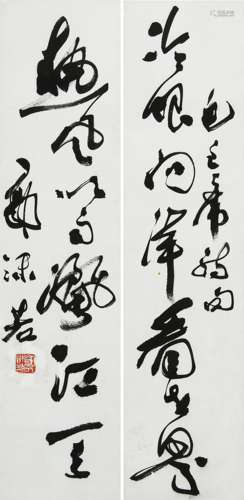 冷眼向洋看世界
毛主席诗句
热风吹雨洒江天
郭沫若